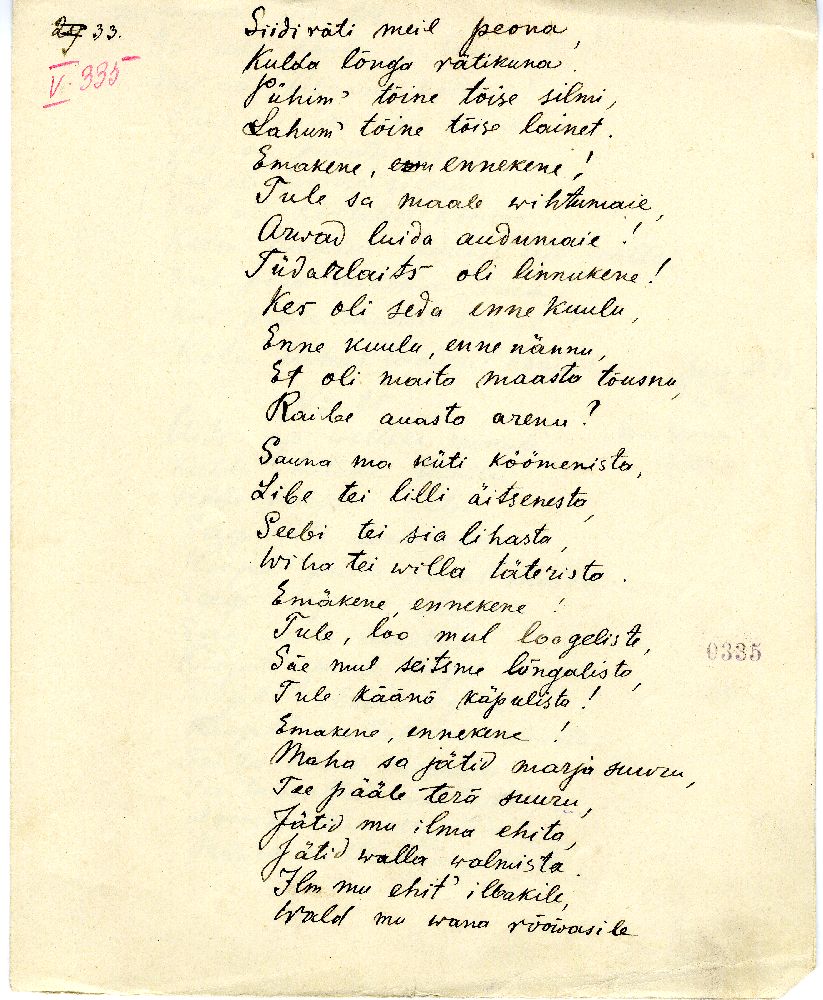 33.
V. 335
Siidi räti meil peona,
Kulda lõnga rätikuna.
Pühim' tõine tõise silmi,
Lahum' tõine tõise lainet.
Emakene, ennekene!
Tule sa maale wihtumaie,
Arwad luida audumaie!
Tüdarlaits oli linnukene!
Kes oli seda enne kuulu,
Enne kuulu, enne nännu,
Et oli maita maasta tõusnu,
Raibe auasta arenu?
Sauna ma kütiköömenista,
Libe tei lilli äitsenesta,
Seebi tei sia lihasta,
Wiha tei willa täterista.
Emäkene, ennekene!
Tule, loo mul loogeliste,
Säe mul seitsme lõngalista,
Tule käänä käpulista!
Emakene, ennekene!
Maha sa jätid marja suuru,
Tee pääle terä suuru,
Jätid mu ilma ehita,
Jätid walla walmista.
Ilm mu ehit' illakile,
Wald mu wana rõõwasile
0335